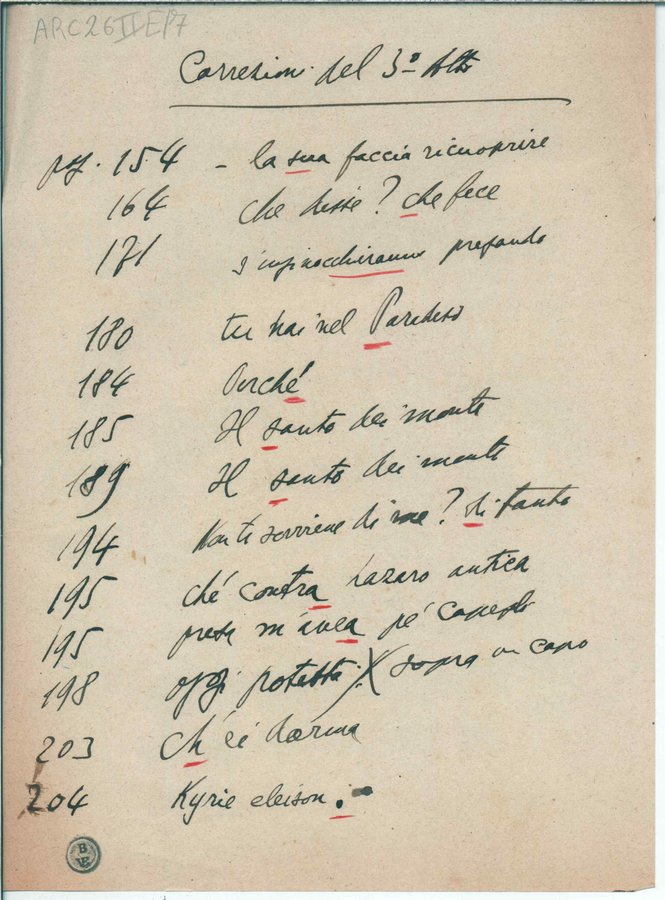 ARC 26 II E/7
Correzioni del 3º Atto
pag. 154 - la sua faccia ricuoprire
164 che disse? che fece
171 s'inginocchieranno pregando
180 tu hai nel Paradiso
184 Perché
185 Il santo dei monti
189 Il santo dei monti
194 Non ti sovviene di me? di tanto
195 ché contra Lazaro antica
195 presi m'avea pe' capegli
198 oggi potestà X sopra un capo
203 Ch'ei dorma
204 Kyrie eleison.